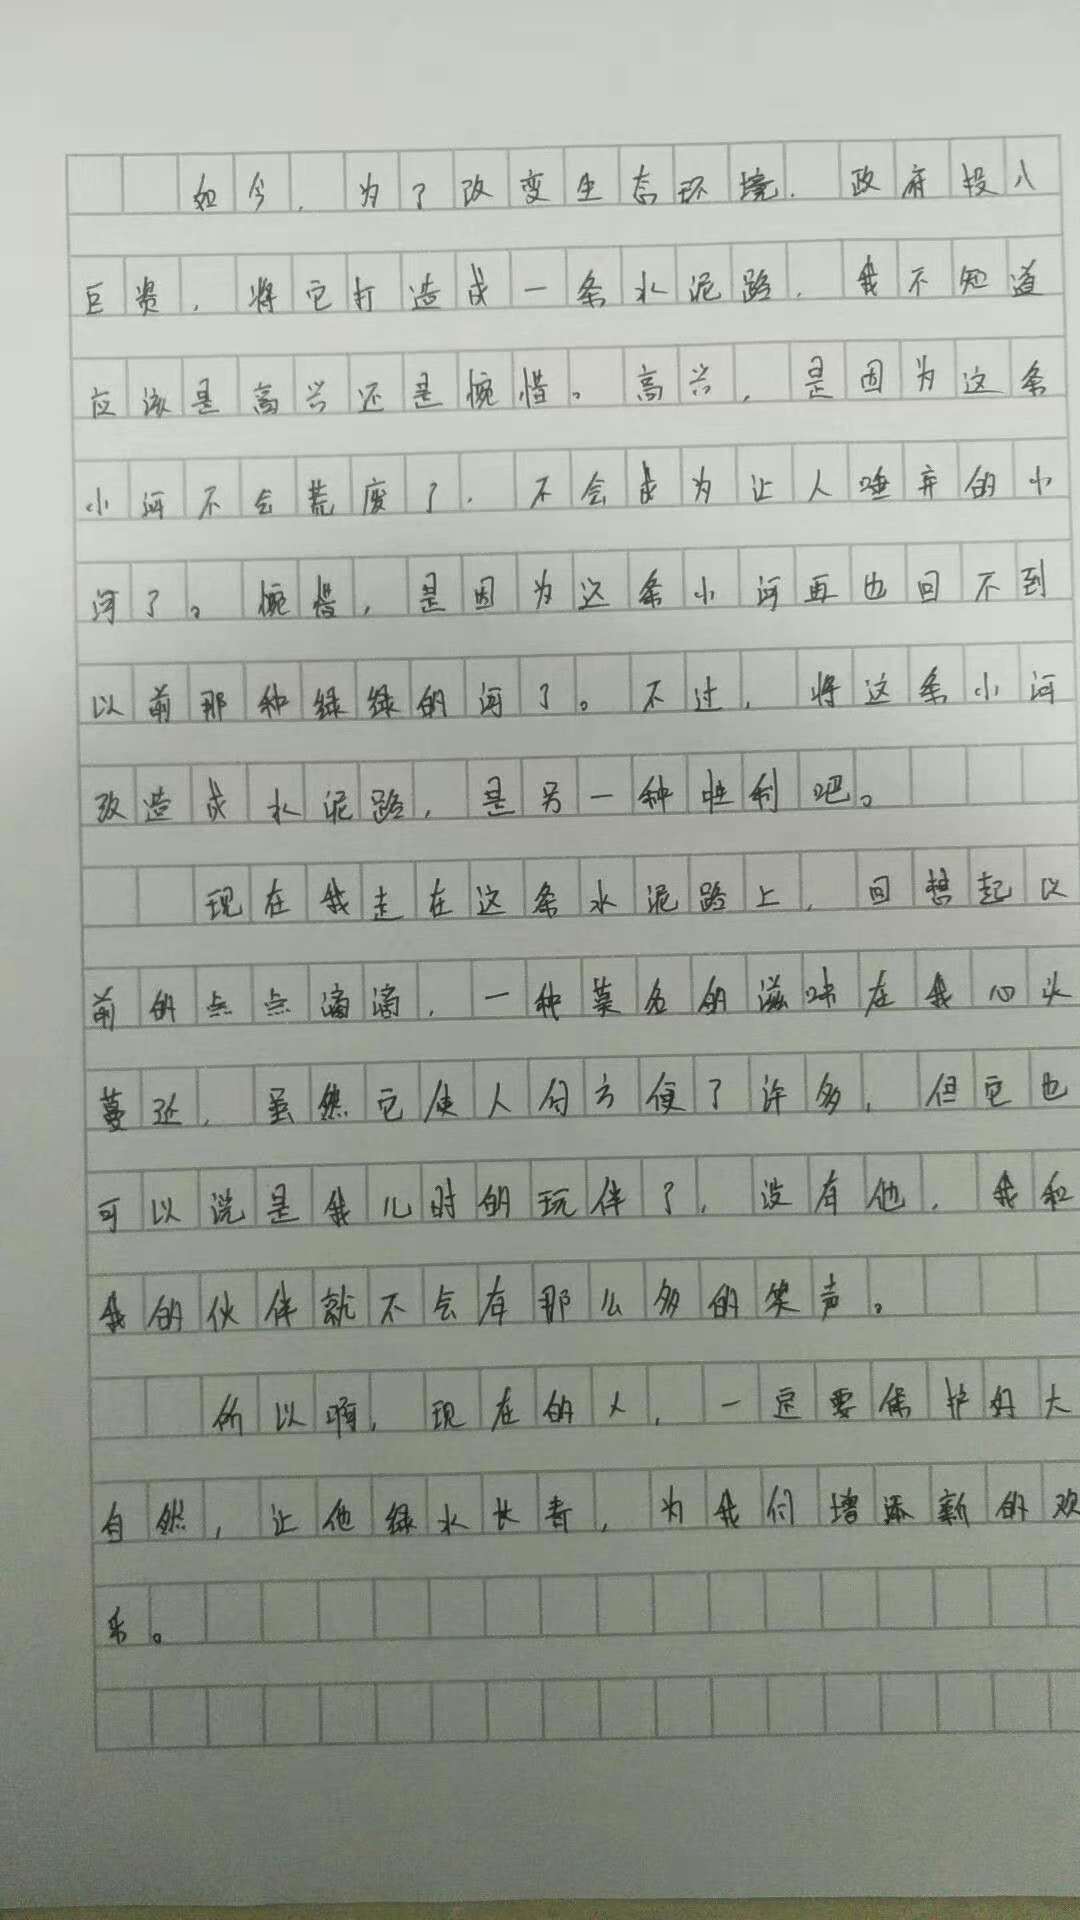 如今，为了改变生态环境，政府投入
巨资，将它打造成一条水泥路，我不知道
应该是高兴还是惋惜。高兴，是因为这条
小河不会荒废了，不会成为让人唾弃的小
河了。惋惜，是因为这条小河再也回不到
以前那种绿绿的河了。不过，将这条小河
改造成水泥路，是另一种胜利吧。
现在我走在这条水泥路上，回想起以
前的点点滴滴，一种莫名的滋味在我心头
蔓延，虽然它使人们方便了许多，但它也
可以说是我儿时的玩伴了，没有他，我和
我的伙伴就不会有那么多的笑声。
所以啊，现在的人，一定要保护好大
自然，让他绿水长青，为我们增添新的欢
乐。